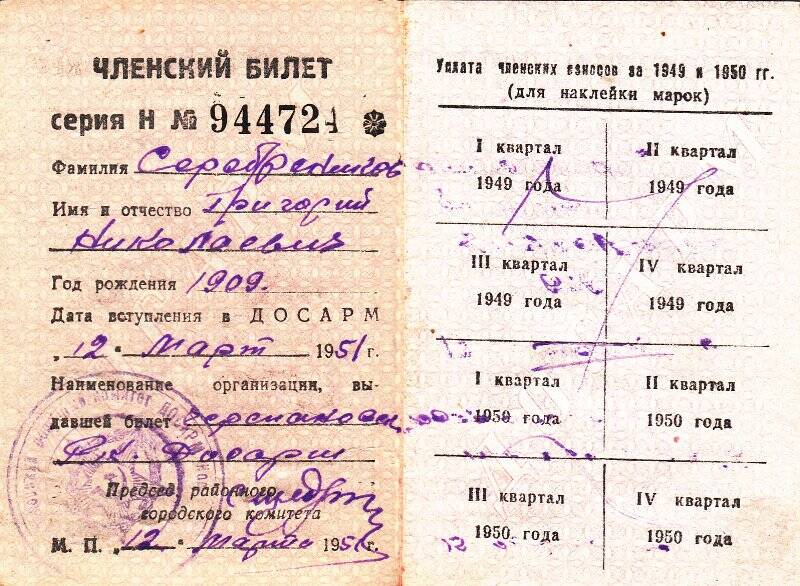 ЧЛЕНСКИЙ БИЛЕТ
серия Н № 944724
Фамилия Серебрянников
Имя и отчество Григорий
Николаевич
Год рождения 1909.
Дата вступления в ДОСАРМ
„12“ Март 1951 г.
Наименование организации, вы-
давшей билет
РК. Досарм
Председ. районного
городского комитета
М. П. „12“ марта 1951 г.
Уплата членских взносов за 1949 и 1950 гг.
(для наклейки марок)
I квартал
1949 года
II квартал
1949 года
III квартал
1949 года
IV квартал
1949 года
I квартал
1950 года
II квартал
1950 года
III квартал
1950 года
IV квартал
1950 года